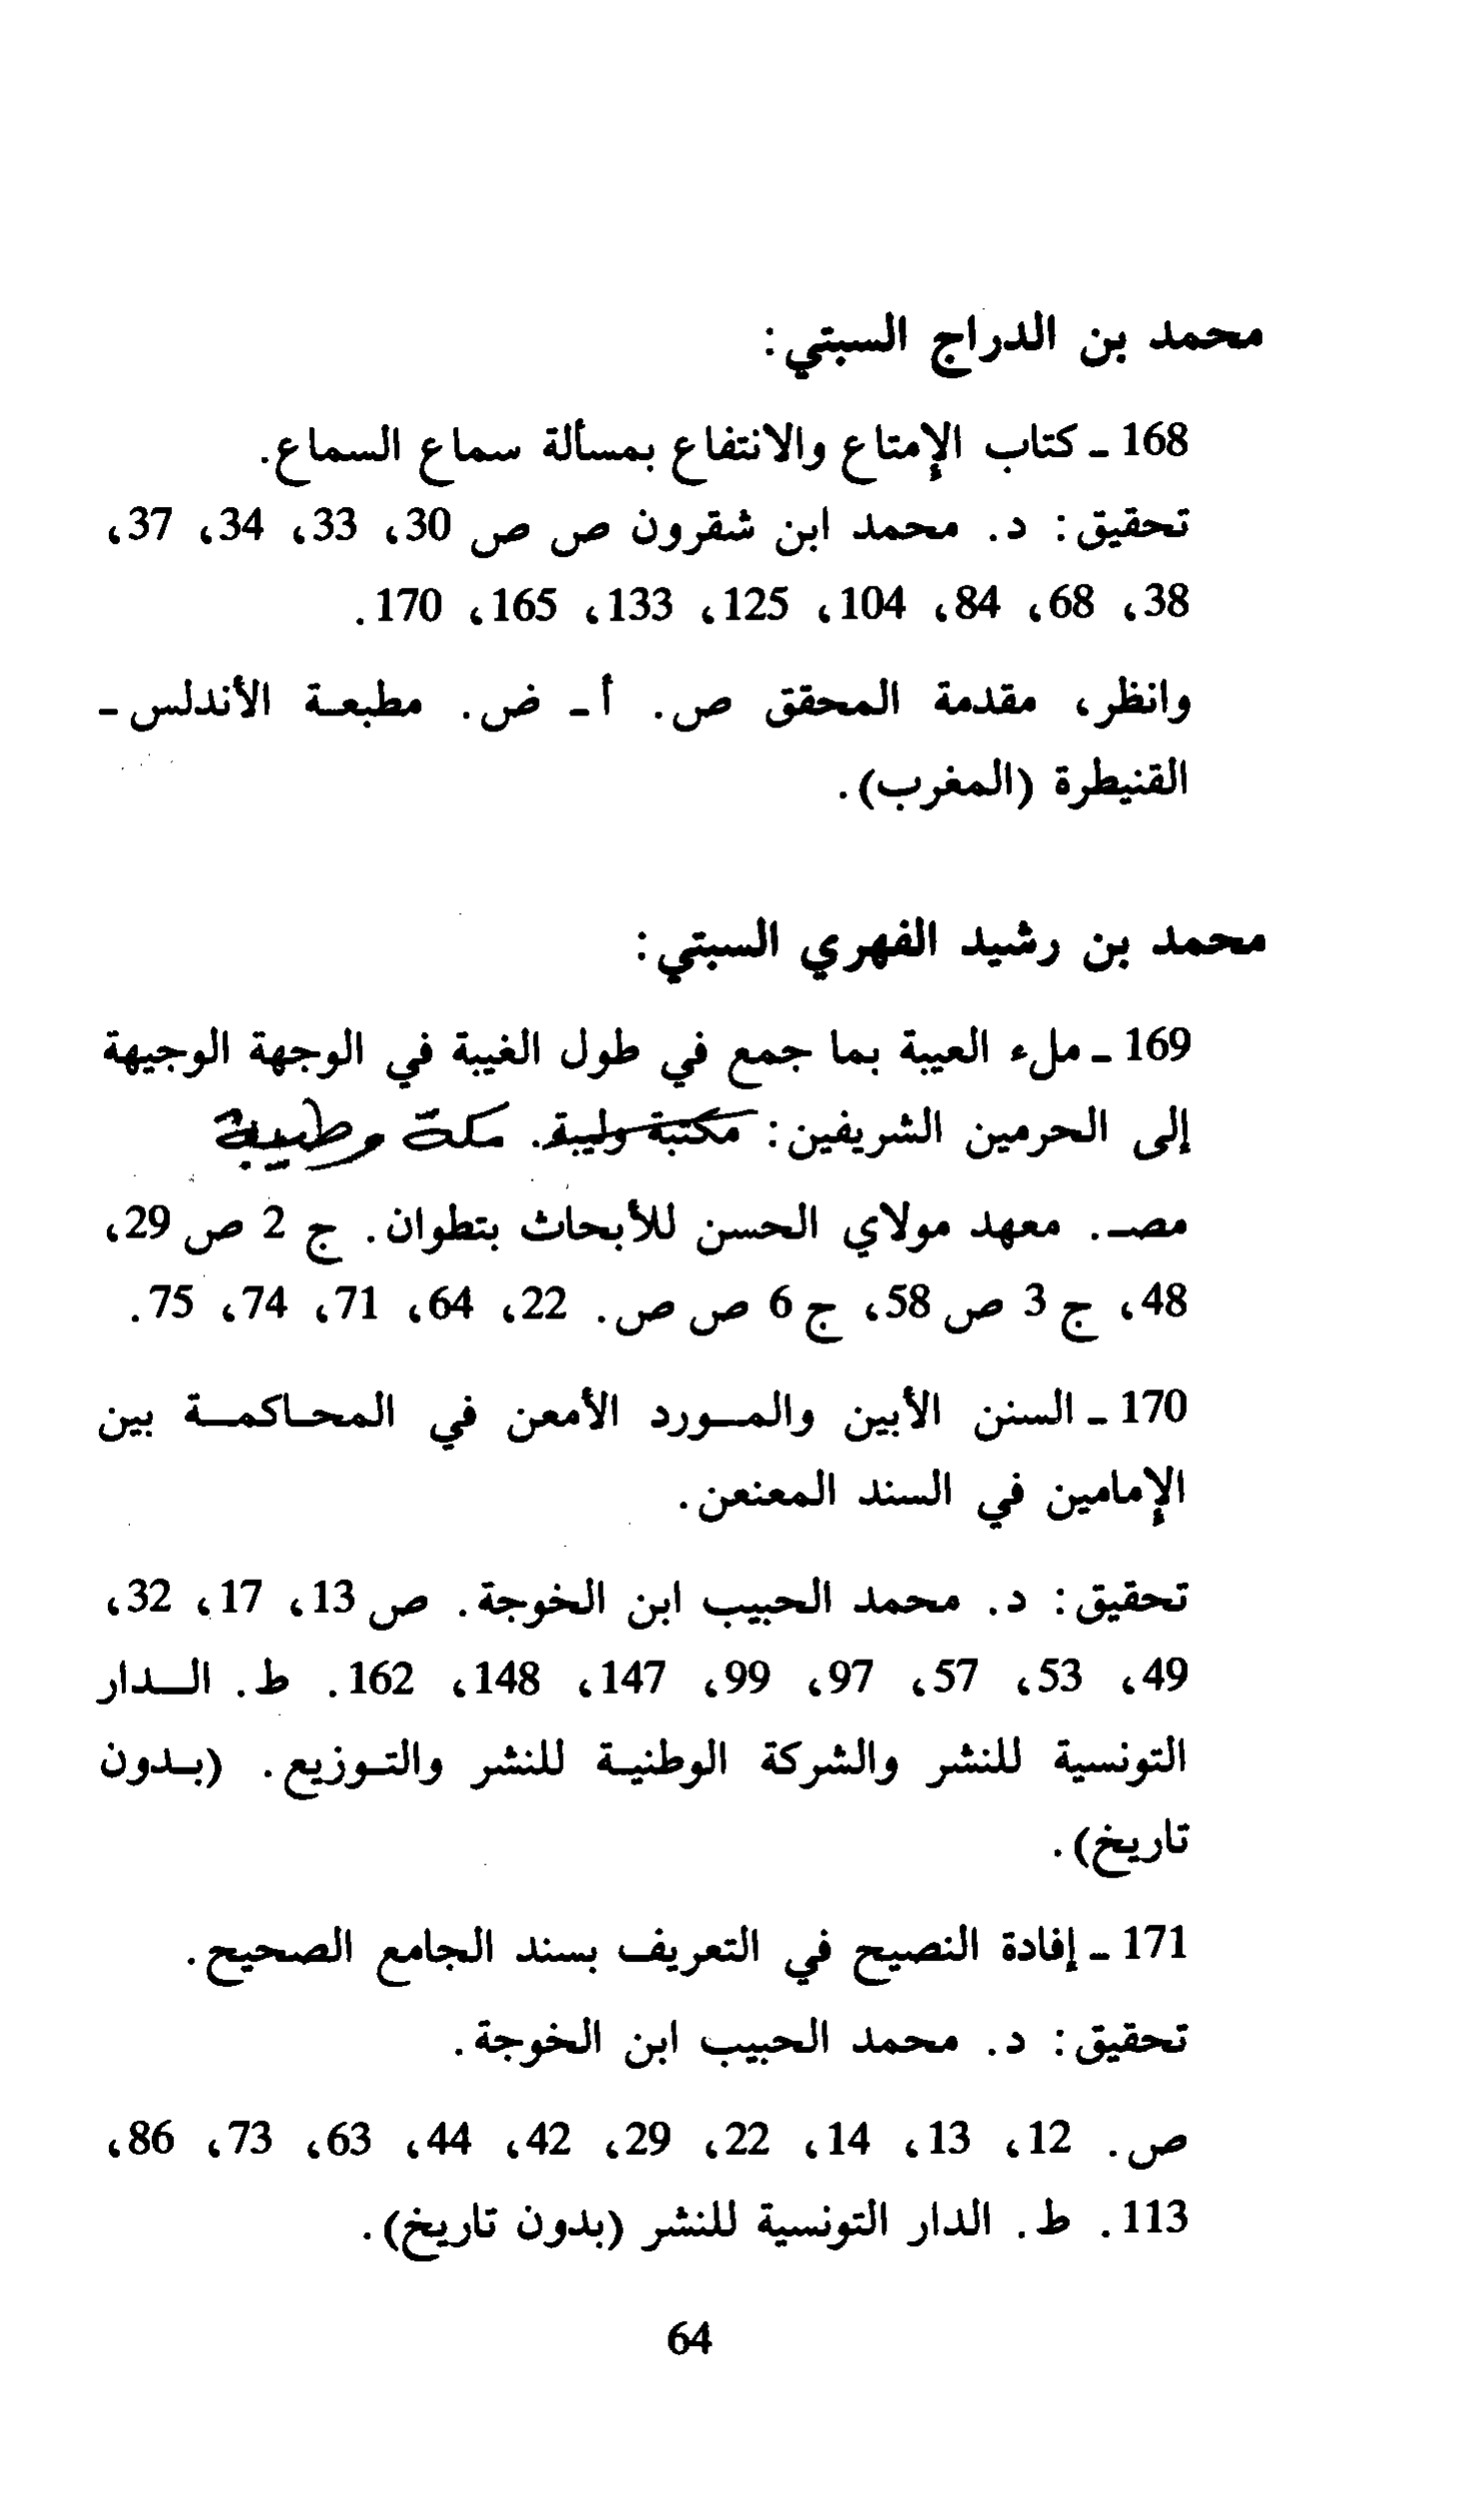 محمد بن الدراج السبتي:
168 ـ كتاب الإمتاع والانتفاع بمسألة سماع السماع.
تحقيق: د. محمد ابن شقرون ص ص 30، 33، 34، 37،
38، 68، 84، 104، 125، 133، 165، 170.
وانظر، مقدمة المحقق ص. أ ـ ض. مطبعة الأندلس ـ
القنيطرة (المغرب).
محمد بن رشيد الفهري السبتي:
169 ـ ملء العيبة بما جمع في طول الغيبة في الوجهة الوجيهة
إلى الحرمين الشريفين: مكتبة وليبة. مكة وطيبة
مصـ. معهد مولاي الحسن للأبحاث بتطوان. ج 2 ص 29،
48، ج 3 ص 58، ج 6 ص ص. 22، 64، 71، 74، 75.
170 ـ السنن الأبين والمورد الأمعن في المحاكمة بين
الإمامين في السند المعنعن.
تحقيق: د. محمد الحبيب ابن الخوجة. ص 13، 17، 32،
49، 53، 57، 97، 99، 147، 148، 162. ط. الدار
التونسية للنشر والشركة الوطنية للنشر والتوزيع. (بدون
تاريخ).
171 ـ إفادة النصيح في التعريف بسند الجامع الصحيح.
تحقيق: د. محمد الحبيب ابن الخوجة.
ص. 12، 13، 14، 22، 29، 42، 44، 63، 73، 86،
113. ط. الدار التونسية للنشر (بدون تاريخ).
64